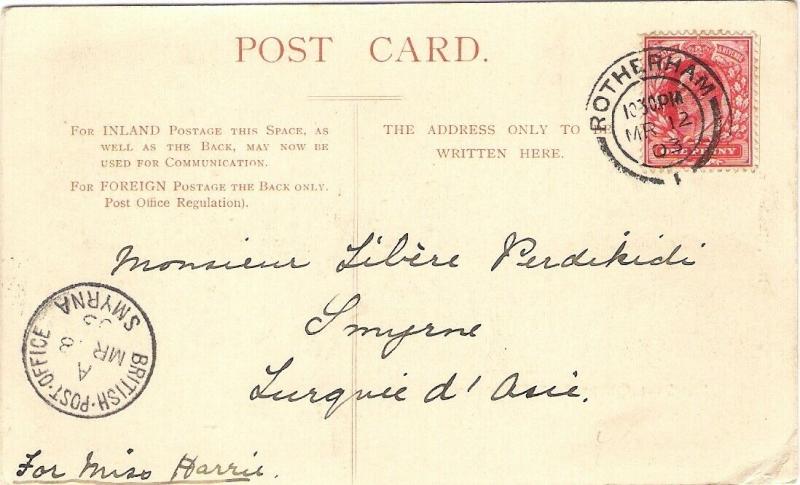 POST CARD.
FOR INLAND POSTAGE THIS SPACE, AS
WELL AS THE BACK, MAY NOW BE
USED FOR COMMUNICATION.
FOR FOREIGN POSTAGE THE BACK ONLY.
Post Office Regulation).
THE ADDRESS ONLY TO BE
WRITTEN HERE.
ROTHERHAM
10.30PM
MR 12
03
1
ONE PENNY
Monsieur Libère Perdikidi
Smyrne
Turquie d'Asie.
BRITISH·POST·OFFICE
SMYRNA
A
MR
03
For Miss Harrie.